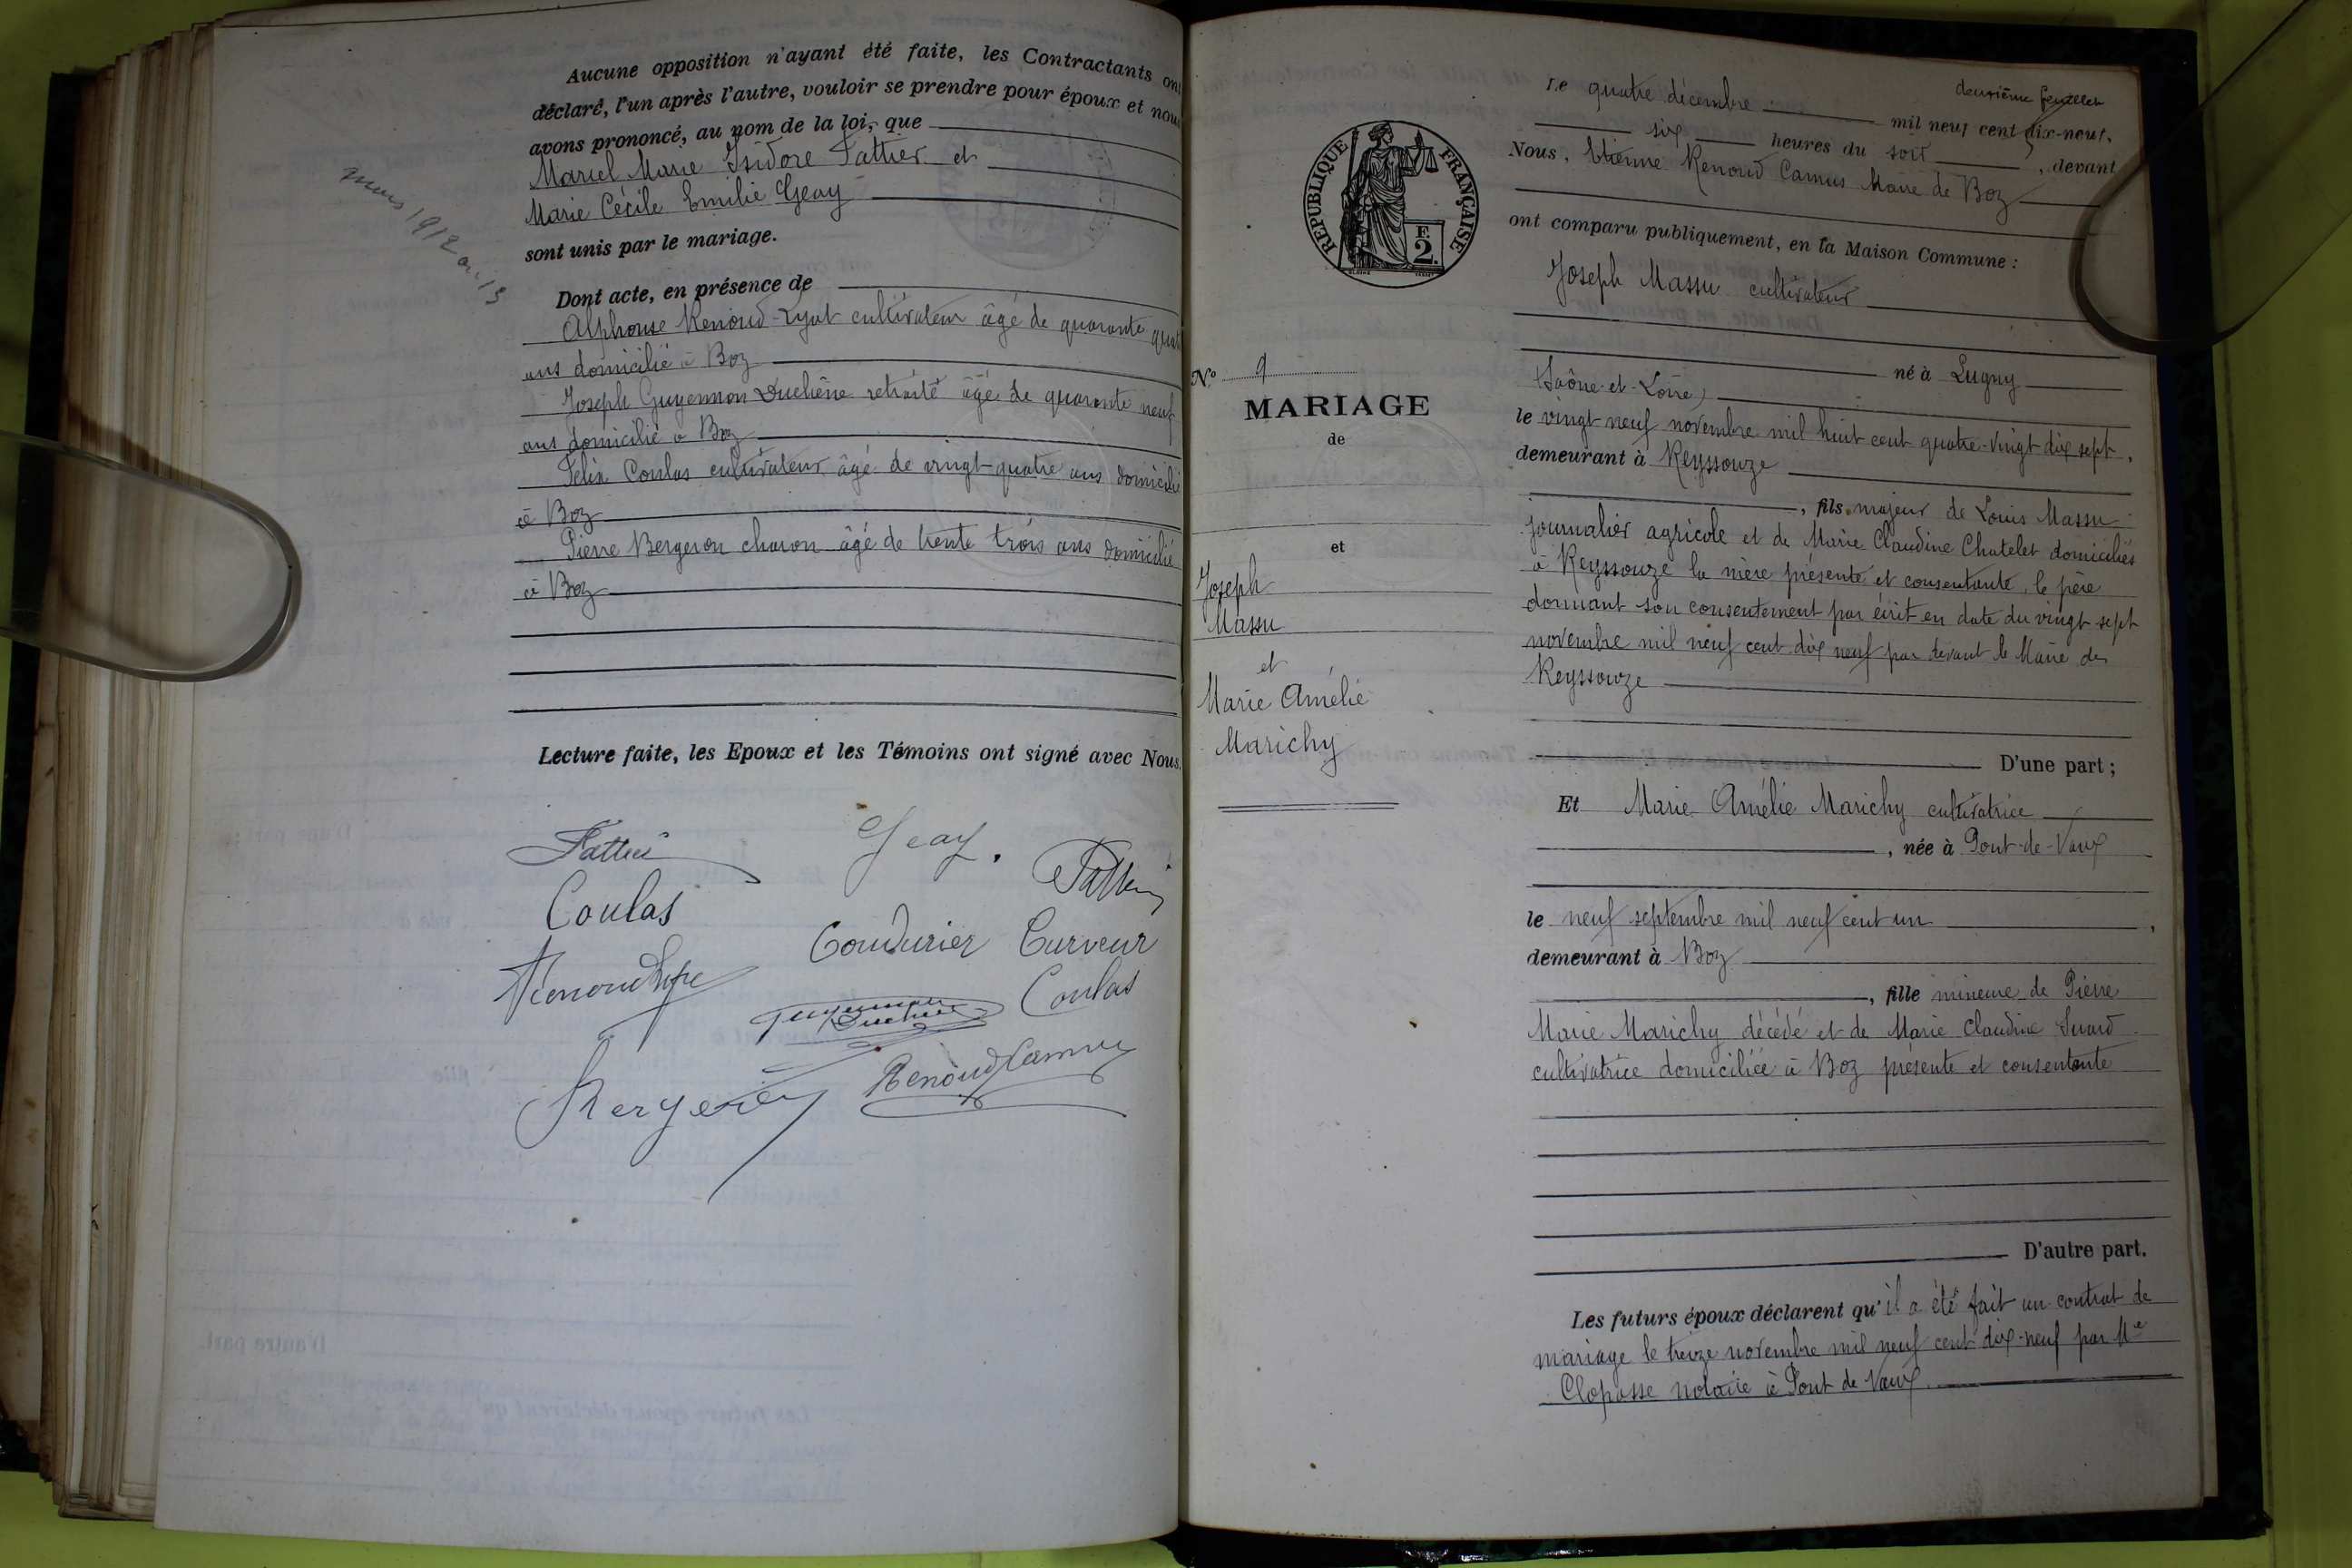 Aucune opposition n'ayant été faite, les Contractants ont
déclaré, l'un après l'autre, vouloir se prendre pour époux et nous
avons prononcé, au nom de la loi, que
Marcel Marie Isidore Fattier et
Marie Cécile Emilie Geay
sont unis par le mariage.
Dont acte, en présence de
Alphonse Renoud-Lyat cultivateur âgé de quarante quat
ans domicilié à Boz
Joseph Guyennon Duchêne retraité âgé de quarante neuf
ans domicilié à Boz
Félix Coulas cultivateur âgé de vingt-quatre ans domicilié
à Boz
Pierre Bergeron charon âgé de trente trois ans domicilié
à Boz
Lecture faite, les Epoux et les Témoins ont signé avec Nous.
Fattier
Geay.
Coulas
Coudurier Curveur
Coulas
Guyennon
Duchêne
Bergeron
Renoud Camus
mars 1912
deuxième feuillet
Le quatre décembre mil neuf cent dix-neuf,
six heures du soir, devant
Nous, Etienne Renoud Camus Maire de Boz
ont comparu publiquement, en la Maison Commune :
Joseph Massu cultivateur
né à Lugny
(Saône-et-Loire)
le vingt neuf novembre mil huit cent quatre-vingt dix sept,
demeurant à Reyssouze
, fils majeur de Louis Massu
journalier agricole et de Marie Claudine Chatelet domiciliés
à Reyssouze la mère présente et consentante, le père
donnant son consentement par écrit en date du vingt sept
novembre mil neuf cent dix neuf par devant le Maire de
Reyssouze
D'une part ;
Et Marie Amélie Marichy cultivatrice
, née à Pont-de-Vaux
le neuf septembre mil neuf cent un,
demeurant à Boz
, fille mineure de Pierre
Marie Marichy décédé et de Marie Claudine Suard
cultivatrice domiciliée à Boz présente et consentante
D'autre part.
Les futurs époux déclarent qu'il a été fait un contrat de
mariage le treize novembre mil neuf cent dix-neuf par Me
Clopasse notaire à Pont de Vaux.
REPUBLIQUE FRANÇAISE
F.
2.
N° 9
MARIAGE
de
et
Joseph
Massu
et
Marie Amélie
Marichy